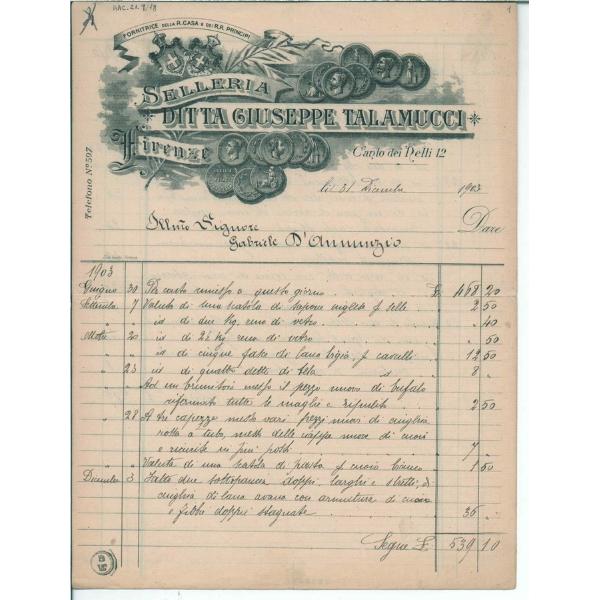 RAC. 21. 9/18
1
FORNITRICE DELLA R. CASA E DEI R.R. PRINCIPI
SELLERIA
DITTA GIUSEPPE TALAMUCCI
Firenze
Canto dei Nelli 12
Telefono N° 597
li 31 Dicembre 1903
Illmo Signore Dare
Gabriele D'Annunzio
1903
Giugno 30 Per conto rimesso a questo giorno £ 468 20
Settembre 7 Valuta di una scatola di sapone inglese p. selle 2 50
" " id di due Kg. crino di vetro " 40
Ottobre 20 id di 2½ Kg. crino di vetro " 50
" " id di cinque fasce di lana bigia p. cavalli 12 50
" 23 id di quattro dette di tela d 8 "
" " Ad un brunitoio messo il pezzo nuovo di bufalo
riformato tutte le maglie e ripulito 2 50
" 28 A tre capezze messo vari pezzi nuovi di cinghia
rotta a tubo, messo delle cappe nuove di cuoio
e ricucite in più posti 7 "
" " Valuta di una scatola di pasta p. cuoio bianco 1 50
Dicembre 3 Fatto due sottopancia doppi, larghi e
cinghia di lana avana con armature di cuoio
e fibbie doppie stagnate 36 "
Segue £. 539 10